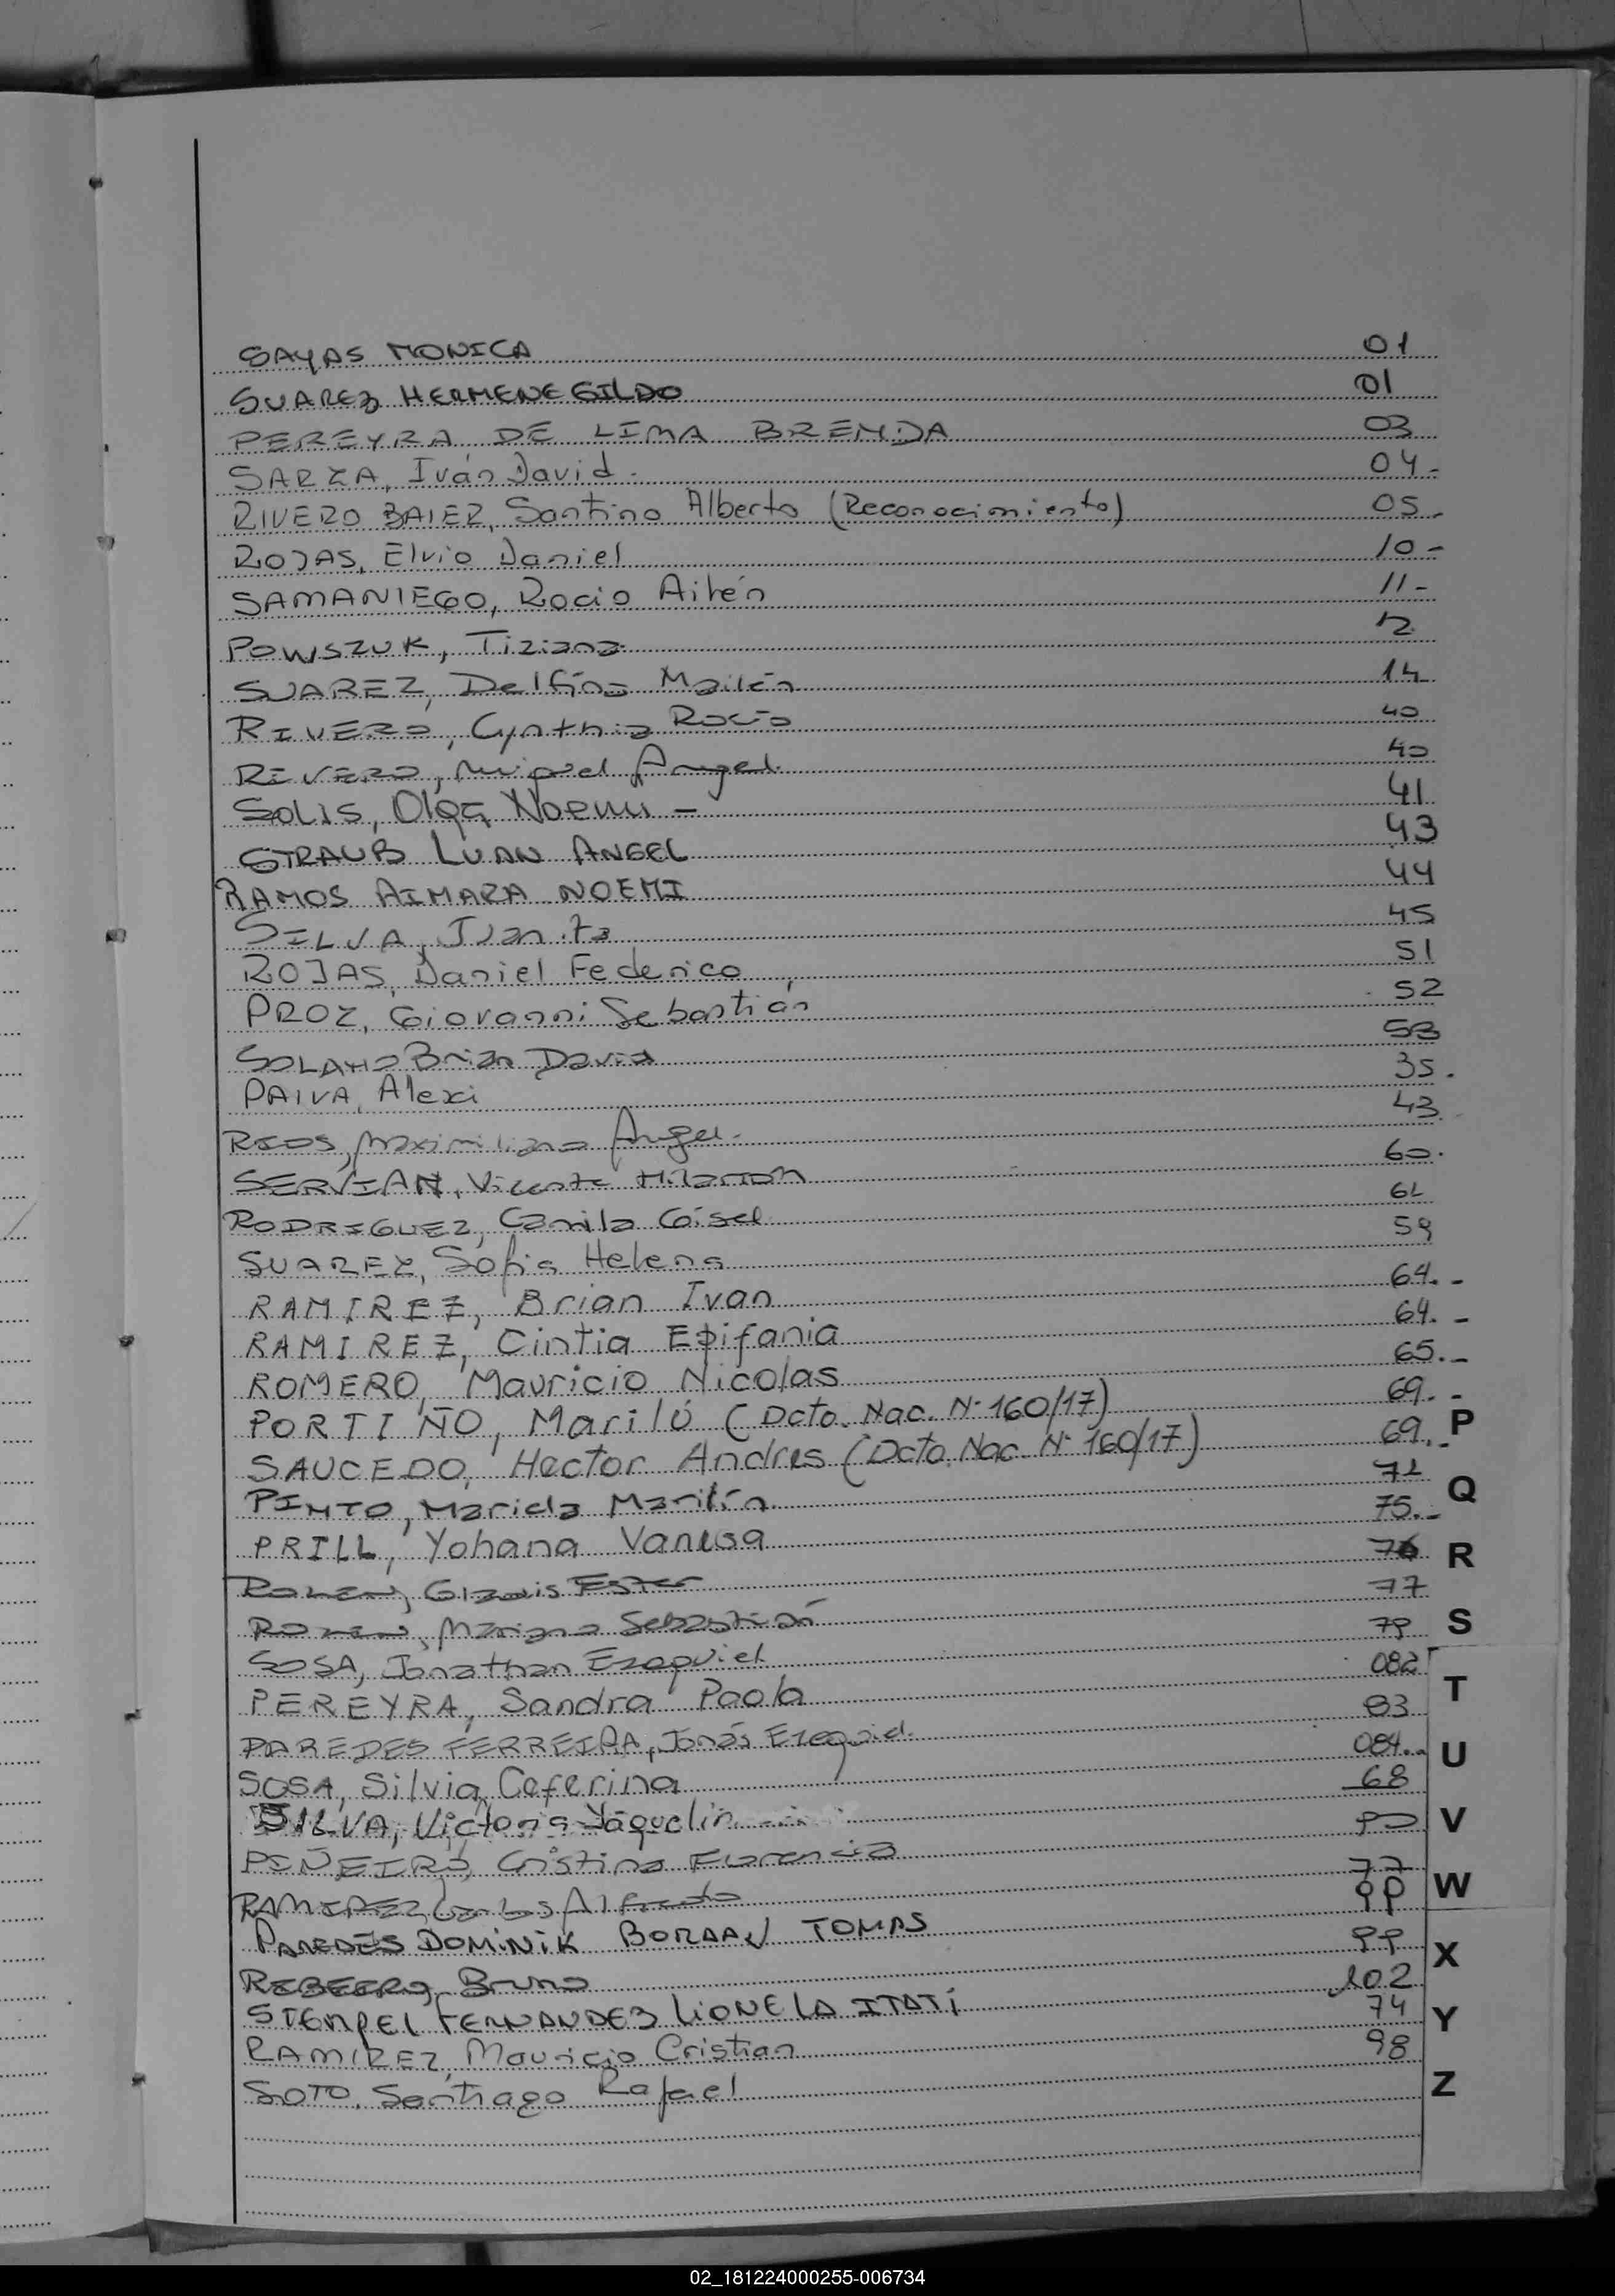 SAYAS MONICA 01
SUAREZ HERMENEGILDO 01
PEREYRA DE LIMA BRENDA 03
SARZA, Iván David. 04.
RIVERO BAIER, Santino Alberto (Reconocimiento) 05.
ROJAS, Elvio Daniel 10-
SAMANIEGO, Rocio Ailén 11-
POWSZUK, Tiziana 12
SUAREZ, Delfina Mailén 14
RIVERO, Cynthia Rocío 40
RIVERO, Miguel Angel. 40
SOLIS, Olga Noemi - 41
STRAUB LUAN ANGEL 43
RAMOS AIMARA NOEMI 44
SILVA, Juanita 45
ROJAS, Daniel Federico 51
PROZ, Giovanni Sebastián 52
SOLANO Brian David 53
PAIVA, Alexi 35.
RIOS, Maximiliano Ángel. 43
SERVIAN, Vicente Hilarion 60.
RODRIGUEZ, Camila Gisel 61
SUAREZ, Sofia Helena 59
RAMIREZ, Brian Ivan 64.-
RAMIREZ, Cintia Epifania 64.-
ROMERO, Mauricio Nicolas 65.-
PORTIÑO, Marilú (Dcto. Nac. N° 160/17) 69.-
SAUCEDO, Hector Andres (Dcto. Nac. N° 160/17) 69.-
PINTO, Mariela Marilín 71
PRILL, Yohana Vanesa 75.-
Gladis Ester 76
Mariano Sebastián 77
SOSA, Jonathan Ezequiel 79
PEREYRA, Sandra Paola 082
PAREDES FERREIRA, Jonás Ezequiel. 83
SOSA, Silvia Ceferina 084.-
SILVA, Victoria Yaquelin 68
PIÑEIRO, Cristina Florencia 90
RAMIREZ, Carlos Alfredo 77
PAREDES DOMINIK TOMAS 99
RIBEIRO, Bruno 99
STEMPEL FERNANDEZ LIONELA ITATÍ 102
RAMIREZ, Mauricio Cristian 74
SOTO, Santiago Rafael 98
P
Q
R
S
T
U
V
W
X
Y
Z
02_181224000255-006734